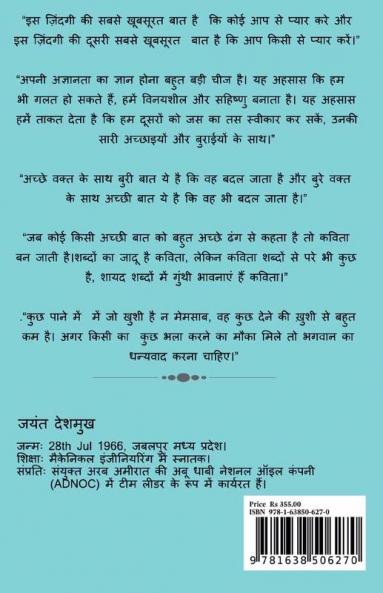 “इस ज़िंदगी की सबसे खूबसूरत बात है  कि कोई आप से प्यार करे और
इस ज़िंदगी की दूसरी सबसे खूबसूरत  बात है कि आप किसी से प्यार करें।”
“अपनी अज्ञानता का ज्ञान होना बहुत बड़ी चीज है। यह अहसास कि हम
भी गलत हो सकते हैं, हमें विनयशील और सहिष्णु बनाता है। यह अहसास
हमें ताकत देता है कि हम दूसरों को जस का तस स्वीकार कर सकें, उनकी
सारी अच्छाइयों और बुराईयों के साथ।”
“अच्छे वक्त के साथ बुरी बात ये है कि वह बदल जाता है और बुरे वक्त
के साथ अच्छी बात ये है कि वह भी बदल जाता है।”
“जब कोई किसी अच्छी बात को बहुत अच्छे ढंग से कहता है तो कविता
बन जाती है।शब्दों का जादू है कविता, लेकिन कविता शब्दों से परे भी कुछ
है, शायद शब्दों में गुंथी भावनाएं हैं कविता।”
.“कुछ पाने में  में जो खुशी है न मेमसाब, वह कुछ देने की ख़ुशी से बहुत
कम है। अगर किसी का  कुछ भला करने का मौका मिले तो भगवान का
धन्यवाद करना चाहिए।”
जयंत देशमुख
जन्म: 28th Jul 1966, जबलपुर मध्य प्रदेश।
शिक्षा: मैकेनिकल इंजीनियरिंग में स्नातक।
संप्रति: संयुक्त अरब अमीरात की अबू धाबी नेशनल ऑइल कंपनी
(ADNOC) में टीम लीडर के रूप में कार्यरत हैं।
Price Rs 355.00
ISBN 978-1-63850-627-0
9 781638 506270